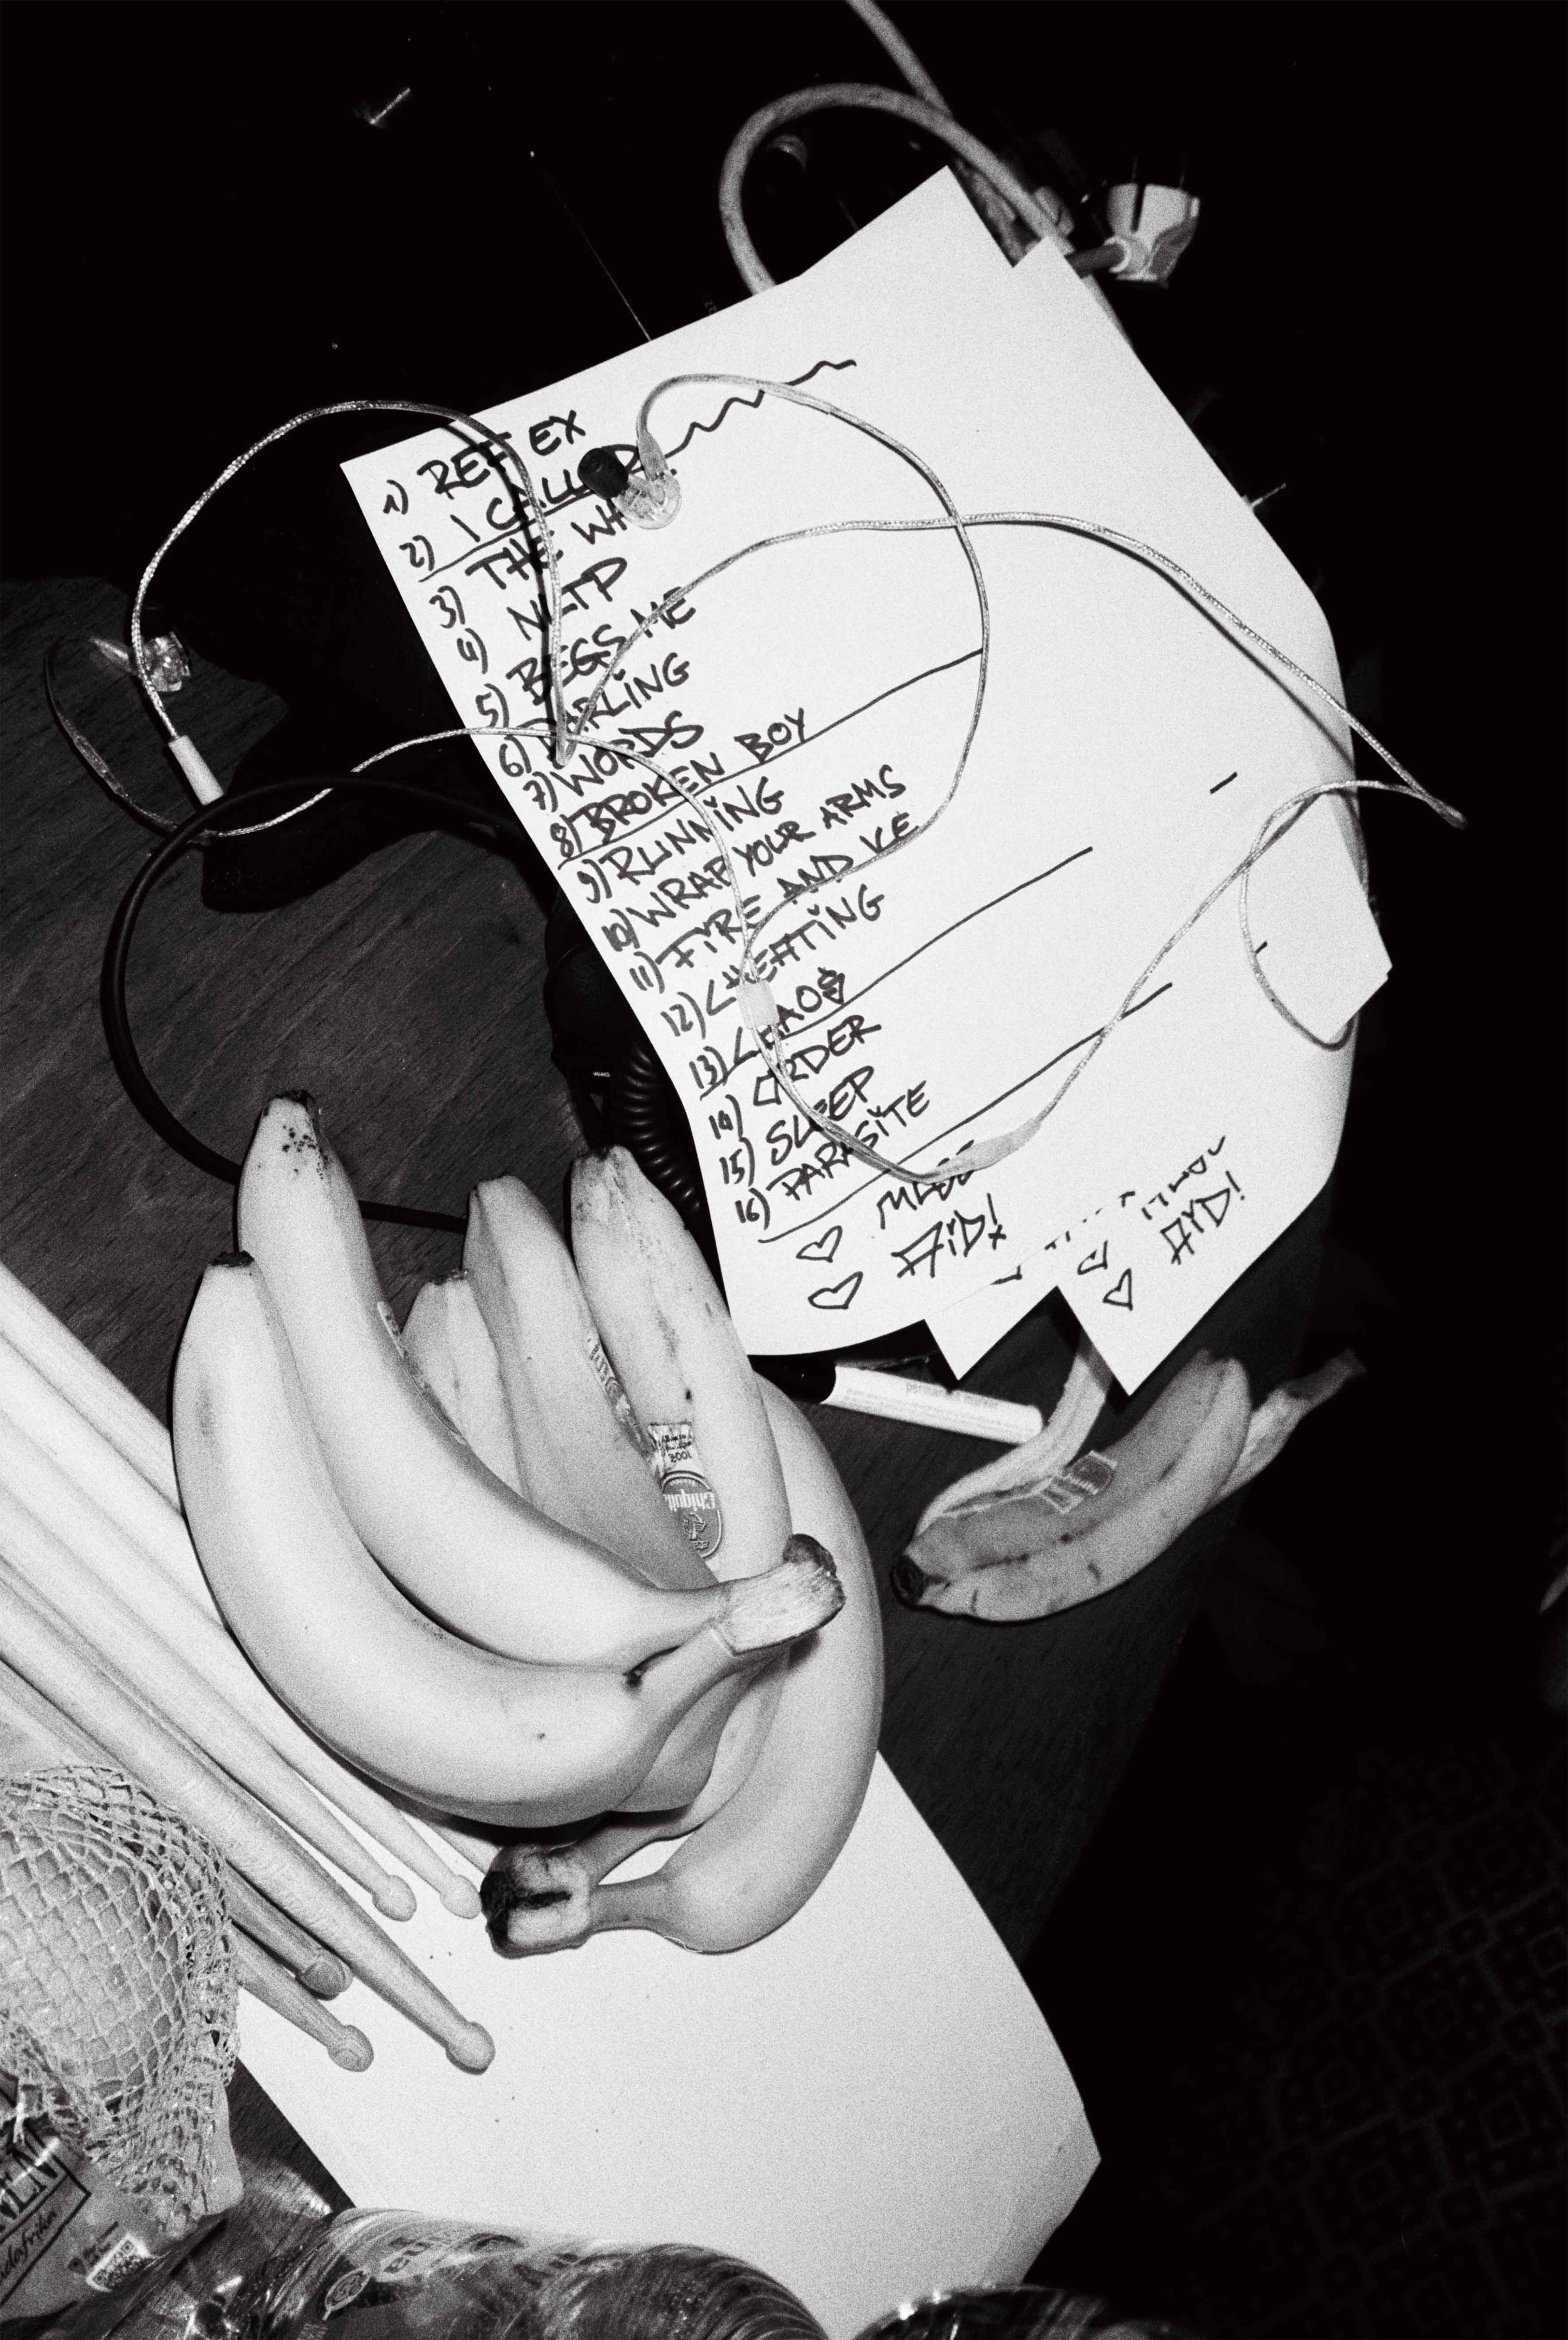 1) REFLEX
2) I CALLED
3) THE WH
4) NLTP
5) BEGS ME
6) DARLING
7) WORDS
8) BROKEN BOY
9) RUNNING
10) WRAP YOUR ARMS
11) FIRE AND ICE
12) CHEATING
13) CHAOS
14) ORDER
15) SLEEP
16) PARASITE
♡
♡ AiD!
♡ AiD!
permanent
Chiquita